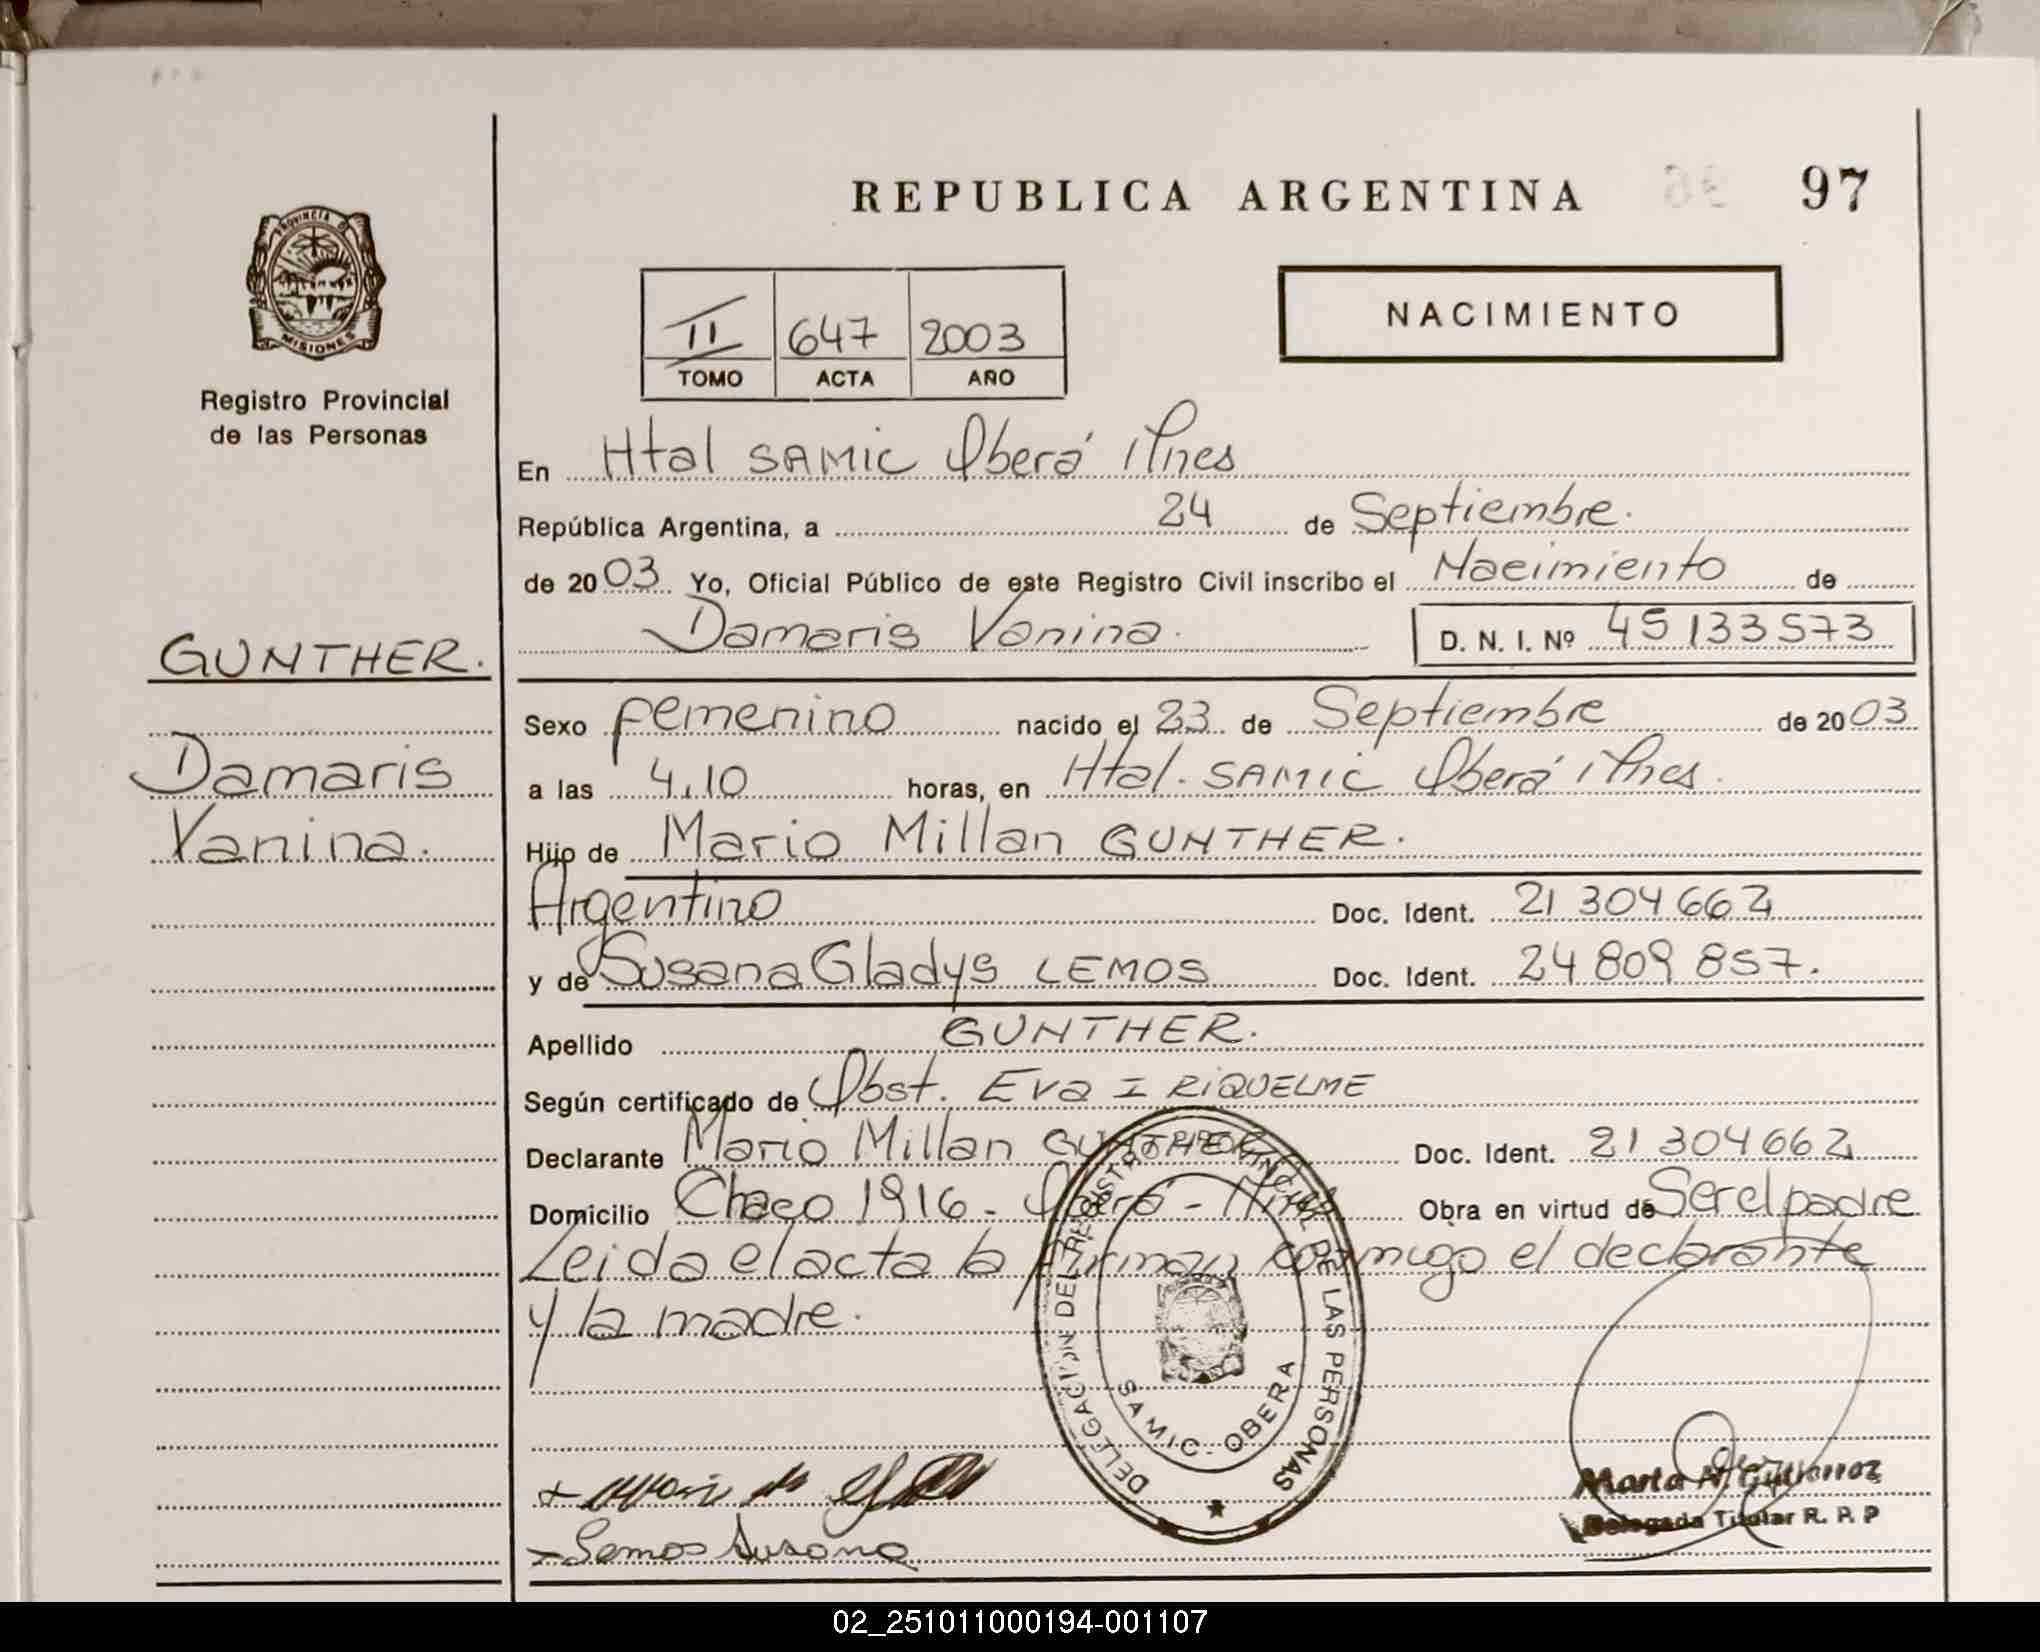 REPUBLICA ARGENTINA
97
PROVINCIA DE
MISIONES
Registro Provincial
de las Personas
II 647 2003
TOMO ACTA AÑO
NACIMIENTO
En Htal SAMIC Oberá Mnes
República Argentina, a 24 de Septiembre.
de 2003 Yo, Oficial Público de este Registro Civil inscribo el Nacimiento de
Damaris Vanina. D. N. I. Nº 45 133 573
GUNTHER.
Damaris
Vanina.
Sexo femenino nacido el 23 de Septiembre de 2003
a las 4.10 horas, en Htal. SAMIC Oberá Mnes.
Hijo de Mario Millan GUNTHER.
Argentino Doc. Ident. 21 304 662
y de Susana Gladys LEMOS Doc. Ident. 24 809 857.
Apellido GUNTHER.
Según certificado de Obst. Eva I RIQUELME
Declarante Mario Millan GUNTHER Doc. Ident. 21 304 662
Domicilio Chaco 1916 - Oberá - Mnes Obra en virtud de Ser el padre
Leida el acta la firman conmigo el declarante
y la madre.
DELEGACION DEL REGISTRO PROVINCIAL DE LAS PERSONAS
SAMIC - OBERA
Marta N. Gutierrez
Delegada Titular R. P. P
Lemos Susana
02_251011000194-001107